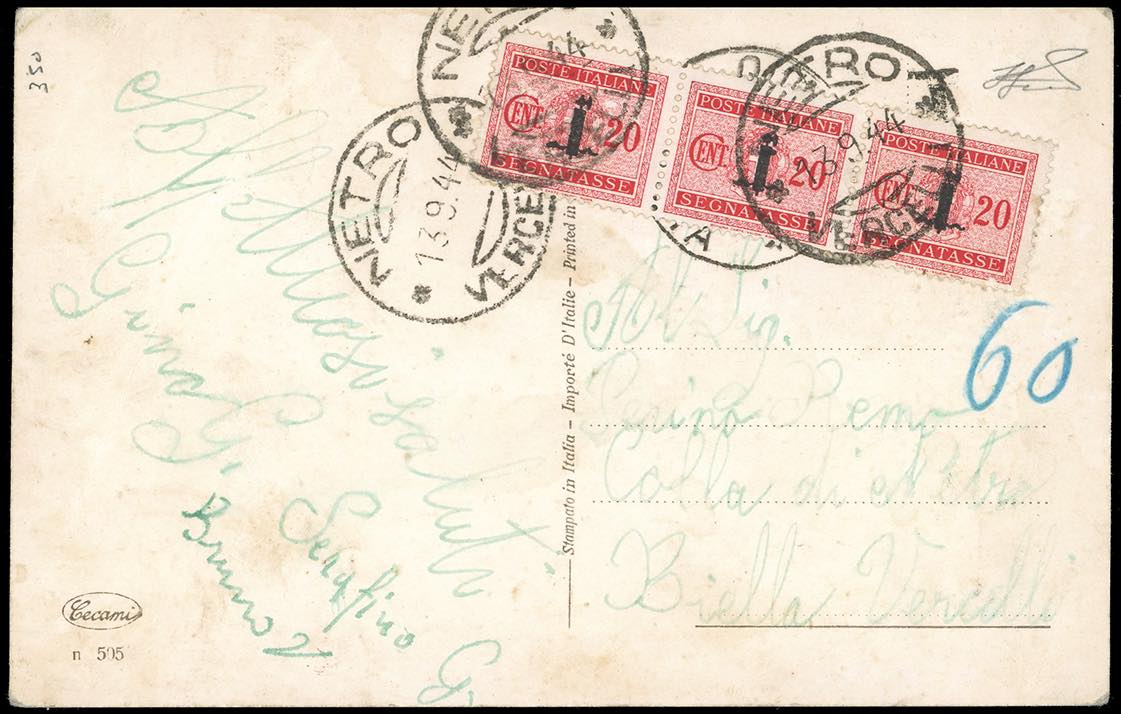 350
NETRO
13.9.44
VERCELLI
NETRO
13.9.44
VERCELLI
POSTE ITALIANE
CENT. 20
SEGNATASSE
POSTE ITALIANE
CENT. 20
SEGNATASSE
POSTE ITALIANE
CENT. 20
SEGNATASSE
60
saluti
Gino G.
Serafino G
Bruno V
Cecami
n 595
Stampato in Italia – Importé D'Italie – Printed in
Al Sig.
Perino Remo
Colla di Netro
Biella Vercelli